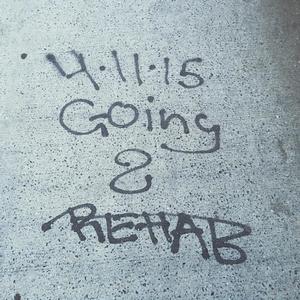 4.11.15
Going
2
REHAB